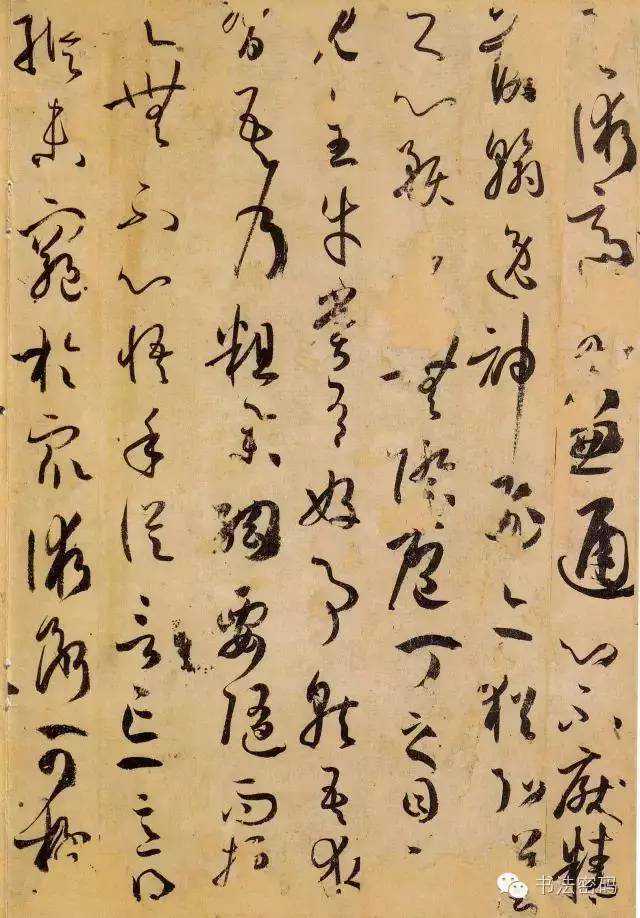 兼通心不厭精
落翰逸神飛亦猶弘羊
之心預乎無際庖丁之目不
見全牛嘗有好事就吾求
習吾乃粗舉綱要隨而授
之無不心悟手從言忘意得
縱未窮於眾術斷可極
书法密码